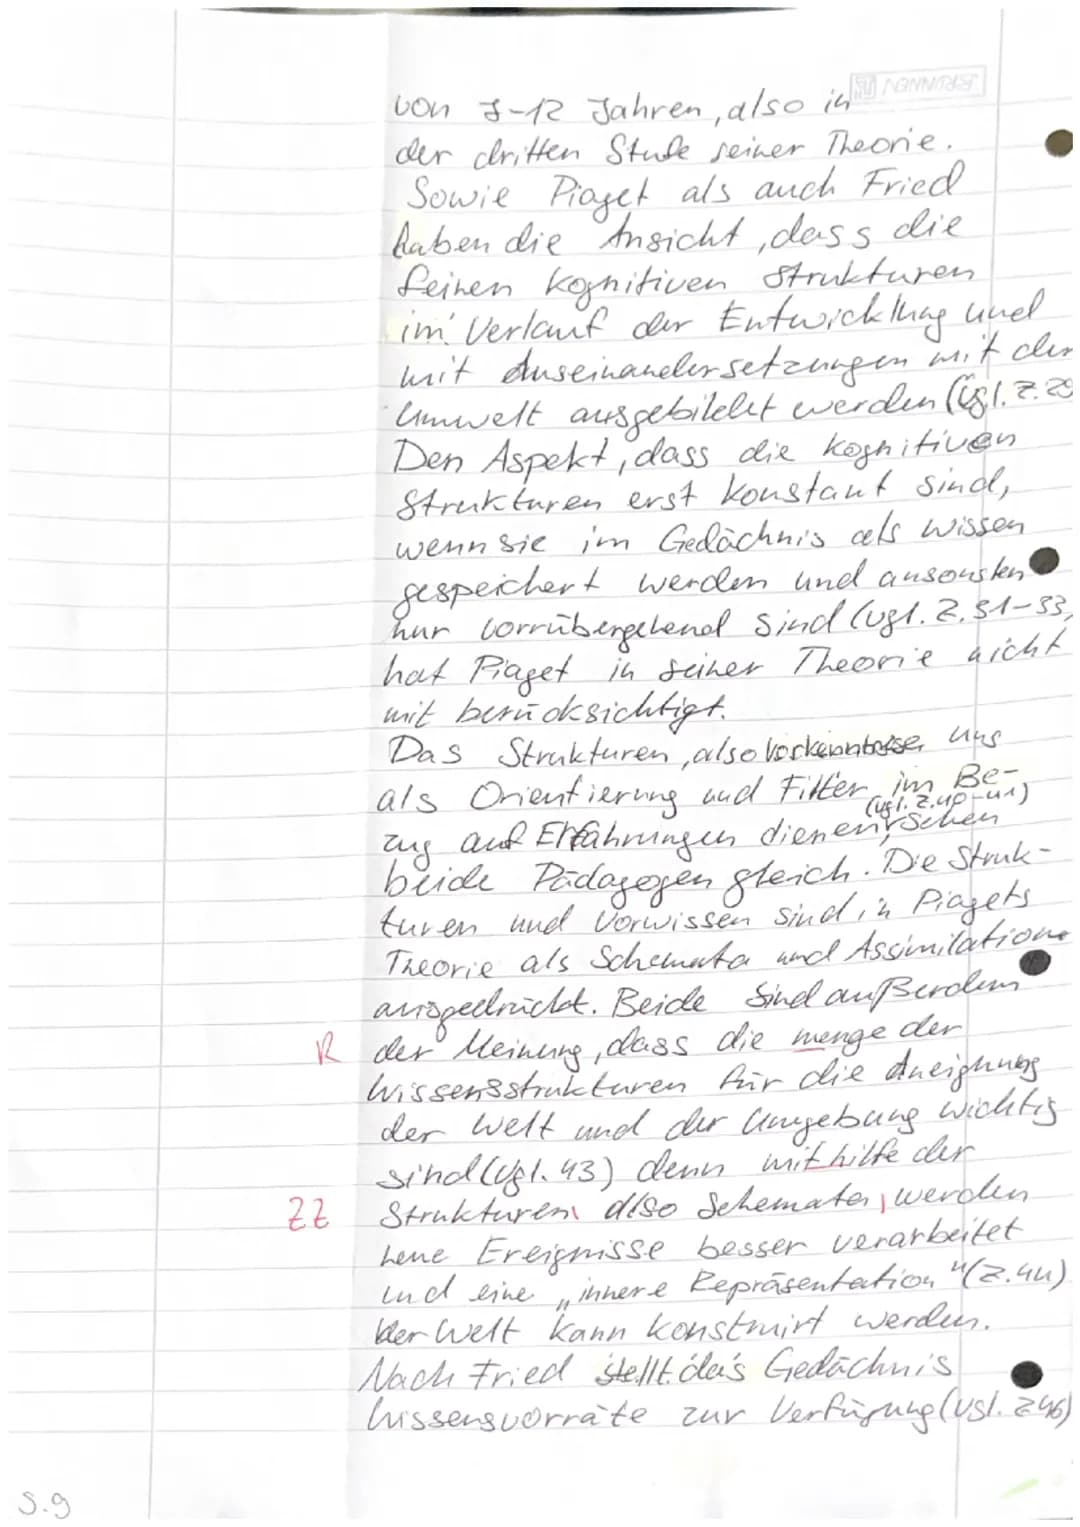 von 7-12 Jahren, also in
der dritten Stufe seiner Theorie.
Sowie Piaget als auch Fried
haben die Ansicht, dass die
feinen kognitiven Strukturen
im Verlauf der Entwicklung und
mit Auseinandersetzungen mit der
Umwelt ausgebildet werden (Vgl. Z. 29
Den Aspekt, dass die kognitiven
Strukturen erst konstant sind,
wenn sie im Gedächnis als wissen
gespeichert werden und ansonsten
nur vorrübergehend sind (vgl. Z. 31-33,
hat Piaget in seiner Theorie nicht
mit berücksichtigt.
Das Strukturen, also Vorkenntnisse, uns
als Orientierung und Filter im Be-
(vgl. Z. 40-41)
zug auf Erfahrungen dienen, sehen
beide Pädagogen gleich. Die Struk-
turen und Vorwissen sind in Piagets
Theorie als Schemata und Assimilation
ausgedrückt. Beide sind außerdem
R der Meinung, dass die menge der
Wissensstrukturen für die Aneignung
der Welt und der Umgebung wichtig
sind (Vgl. 43) denn mithilfe der
ZZ Strukturen, also Schemata, werden
neue Ereignisse besser verarbeitet
und eine „innere Repräsentation" (Z. 44)
der Welt kann konstruirt werden.
Nach Fried stellt das Gedächnis
Wissensvorräte zur Verfügung (vgl. Z 46)
S. 9